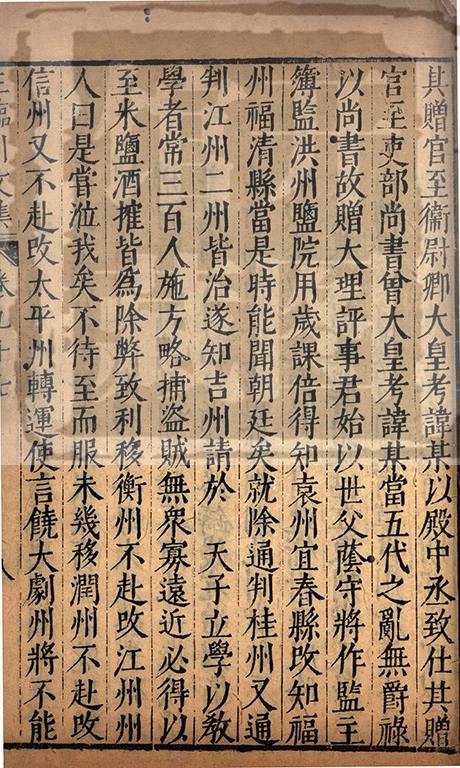 其贈官至衞尉卿大皇考諱某以殿中丞致仕其贈
官至吏部尚書曾大皇考諱某當五代之亂無爵祿
以尚書故贈大理評事君始以世父蔭守將作監主
簿監洪州鹽院用歲課倍得知袁州宜春縣改知福
州福清縣當是時能聞朝廷矣就除通判桂州又通
判江州二州皆治遂知吉州請於　天子立學以敎
學者常三百人施方略捕盜賊無衆寡遠近必得以
至米鹽酒榷皆爲除弊致利移衡州不赴改江州州
人曰是嘗涖我矣不待至而服未幾移潤州不赴改
信州又不赴改太平州轉運使言饒大劇州將不能
王臨川文集　卷九十七　八